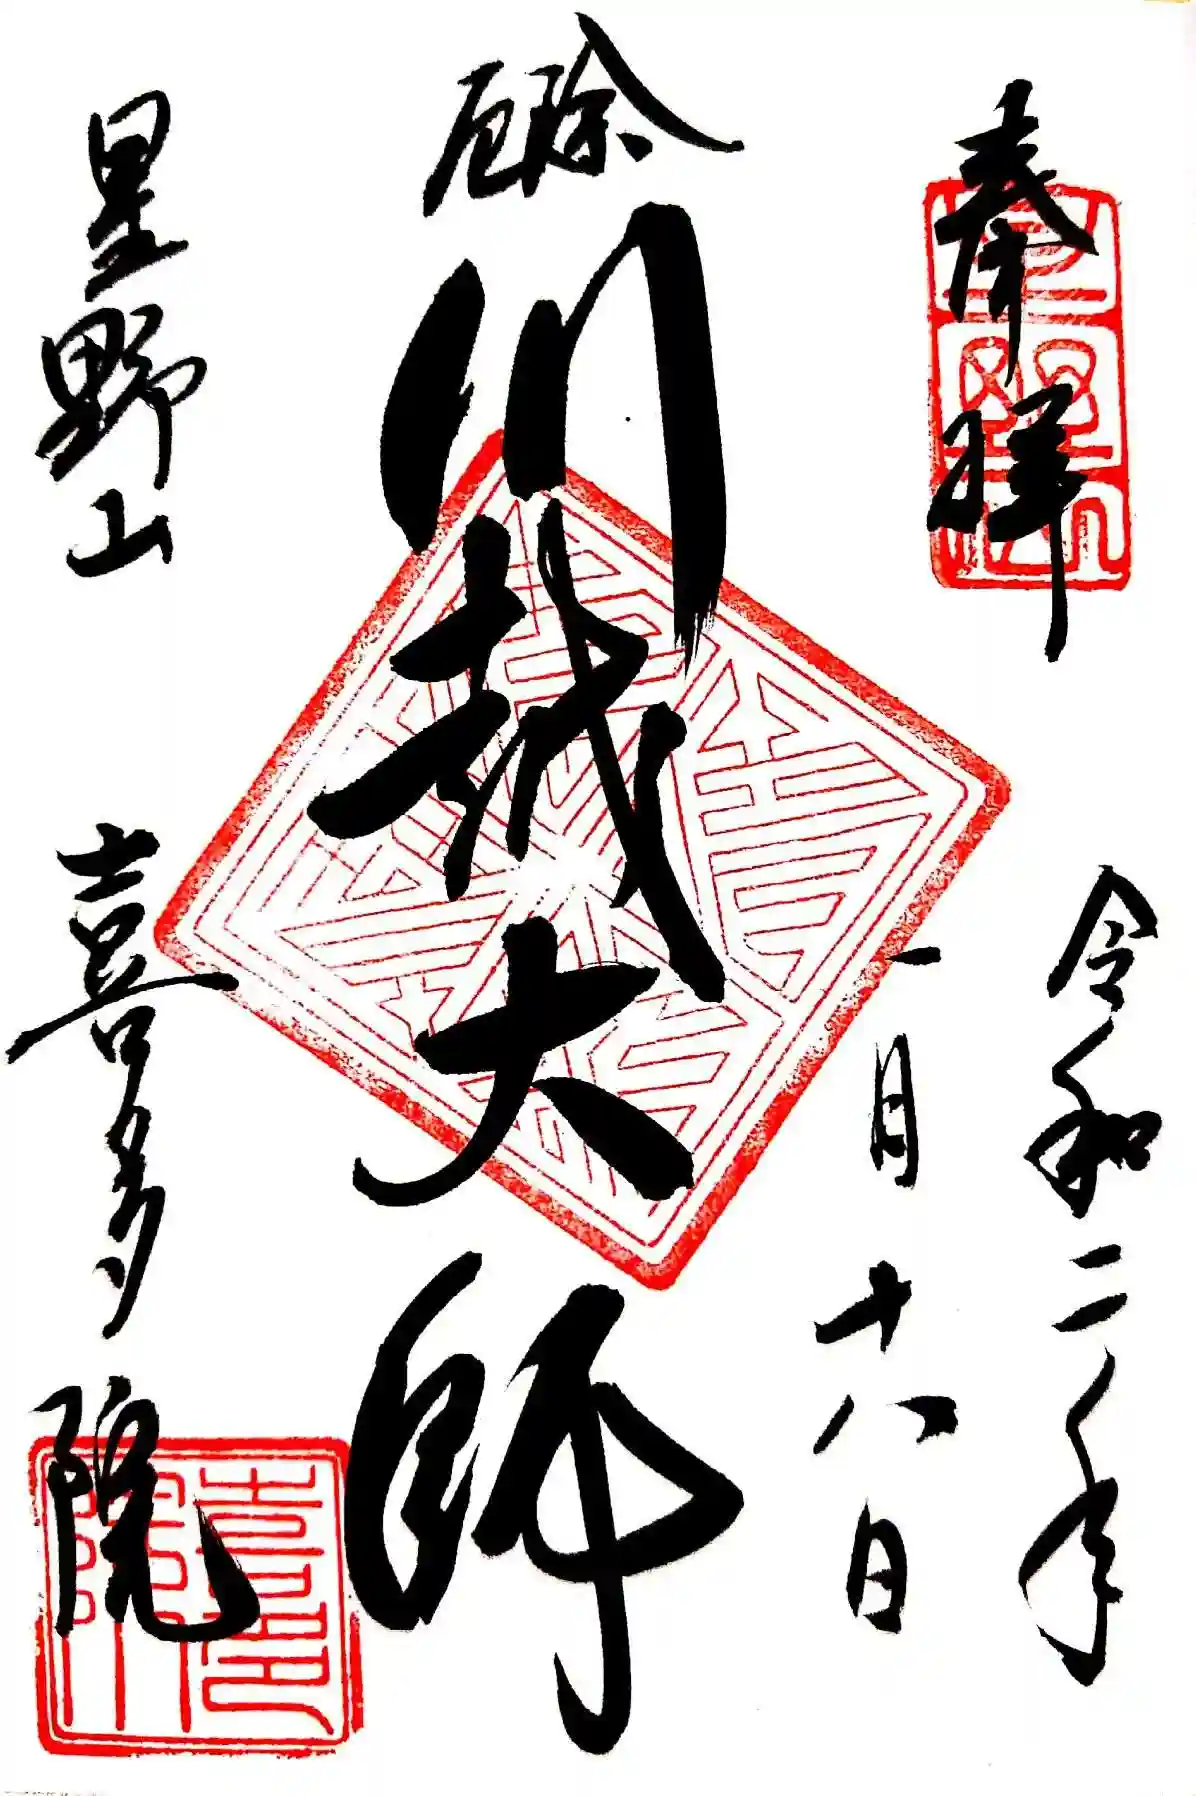 奉拝
令和二年
一月十八日
厄除
川越大師
星野山
喜多院
喜多院